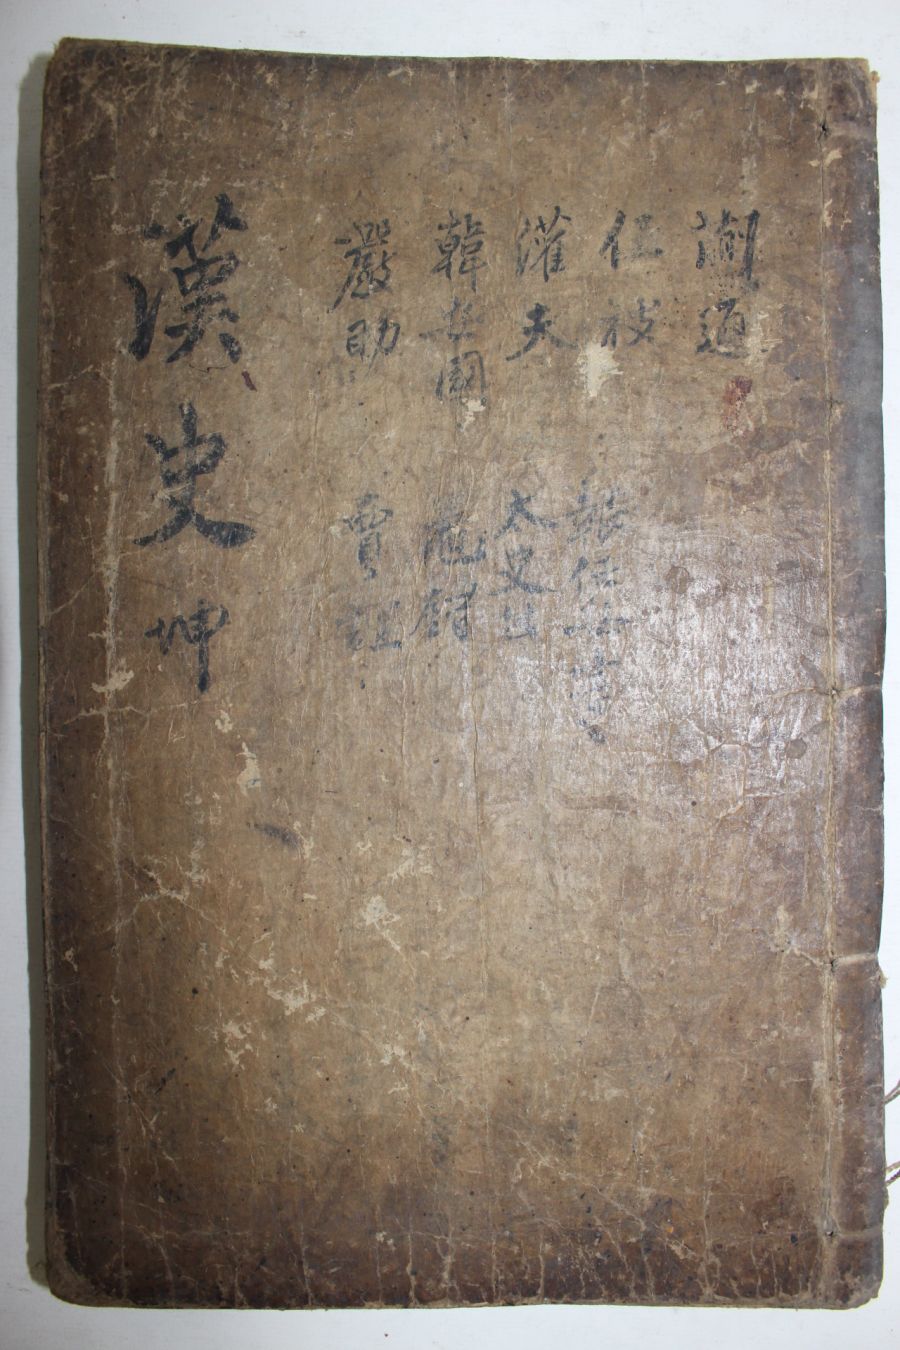 蒯通
伍被
灌夫
韓安國
嚴助
報任安書
太史公
晁錯
賈誼
漢史 坤